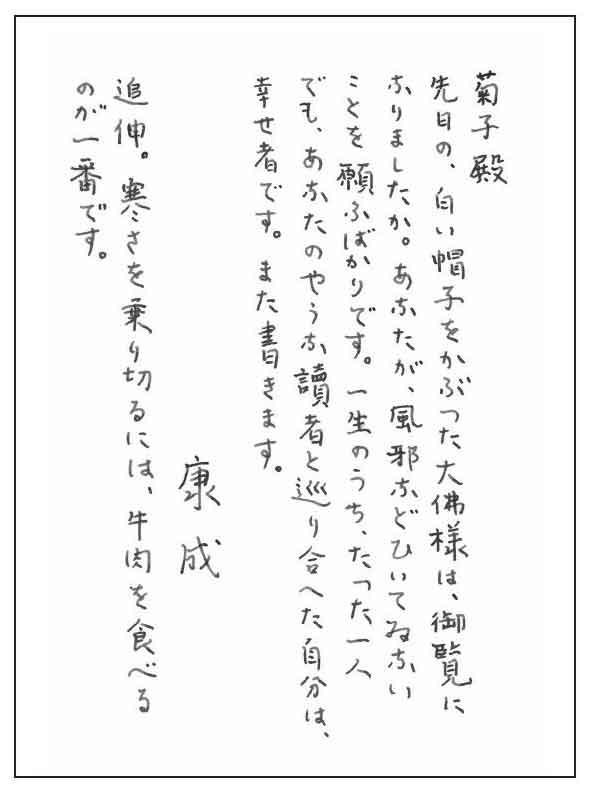 菊子殿
先日の、白い帽子をかぶつた大佛様は、御覧に
なりましたか。あなたが、風邪などひいてゐない
ことを願ふばかりです。一生のうち、たつた一人
でも、あなたのやうな讀者と巡り合へた自分は、
幸せ者です。また書きます。
康成
追伸。寒さを乗り切るには、牛肉を食べる
のが一番です。